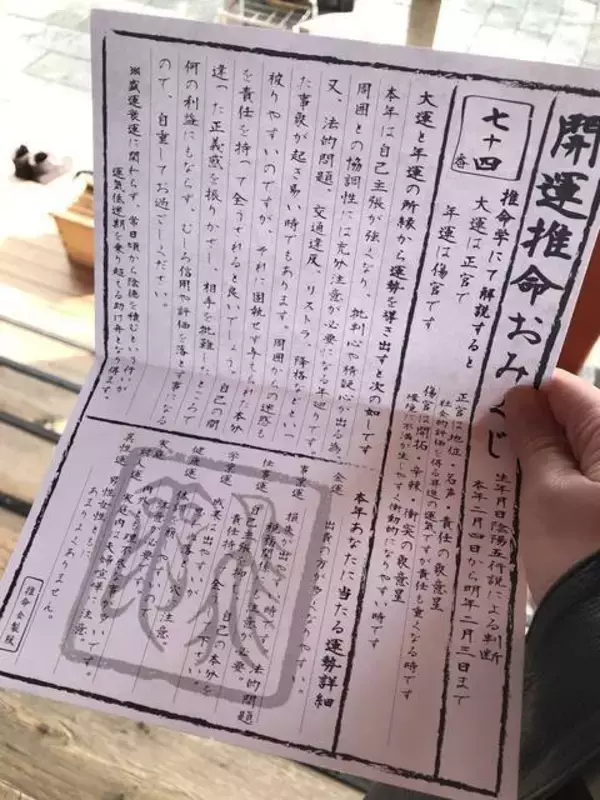 開運推命おみくじ
生年月日陰陽五行説による判断
本年二月四日から明年二月三日まで
七十四
番
推命学にて解説すると
大運は正官で
年運は傷官です
正官は地位・名声・責任の象意星
社会的評価を得る昇進の運気ですが責任も重くなる時です
傷官は開拓・辛辣・衝突の象意星
環境に不満が生じやすく衝動的になりやすい時です
大運と年運の所縁から運勢を導き出すと次の如しです
本年は自己主張が強くなり、批判心や猜疑心が出る為、
周囲との協調性には充分注意が必要になる年廻りです。
又、法的問題、交通違反、リストラ、降格などといっ
た事象が起き易い時でもあります。周囲からの迷惑も
被りやすいのですが、それに固執せず与えられた本分
を責任を持って全うされると良いでしょう。自己の間
違った正義感を振りかざし、相手を批難したところで
何の利益にもならず、むしろ信用や評価を落とす事になる
ので、自重してお過ごしください。
※歳運後運に関わらず、常日頃から陰徳を積むという行いが
運気低迷期を乗り超てる助け舟となり得ます。
本年あなたに当たる運勢詳細
金運 出費の方が多くなりやすい。
事業運 損 が出やすい時です。法的問題
税務関係にも注意が必要。
仕事運 自己主張を抑え、自己の本分を
責任持 全 して下さい。
学業運 成果 出やすいが
健康運
家庭運 内 注意が必要です。家庭内は夫婦喧嘩に注意。
対人運 とも理不尽な事が多いです。
異性運 男性女性ともに
あまりよくありません。
推命会製版